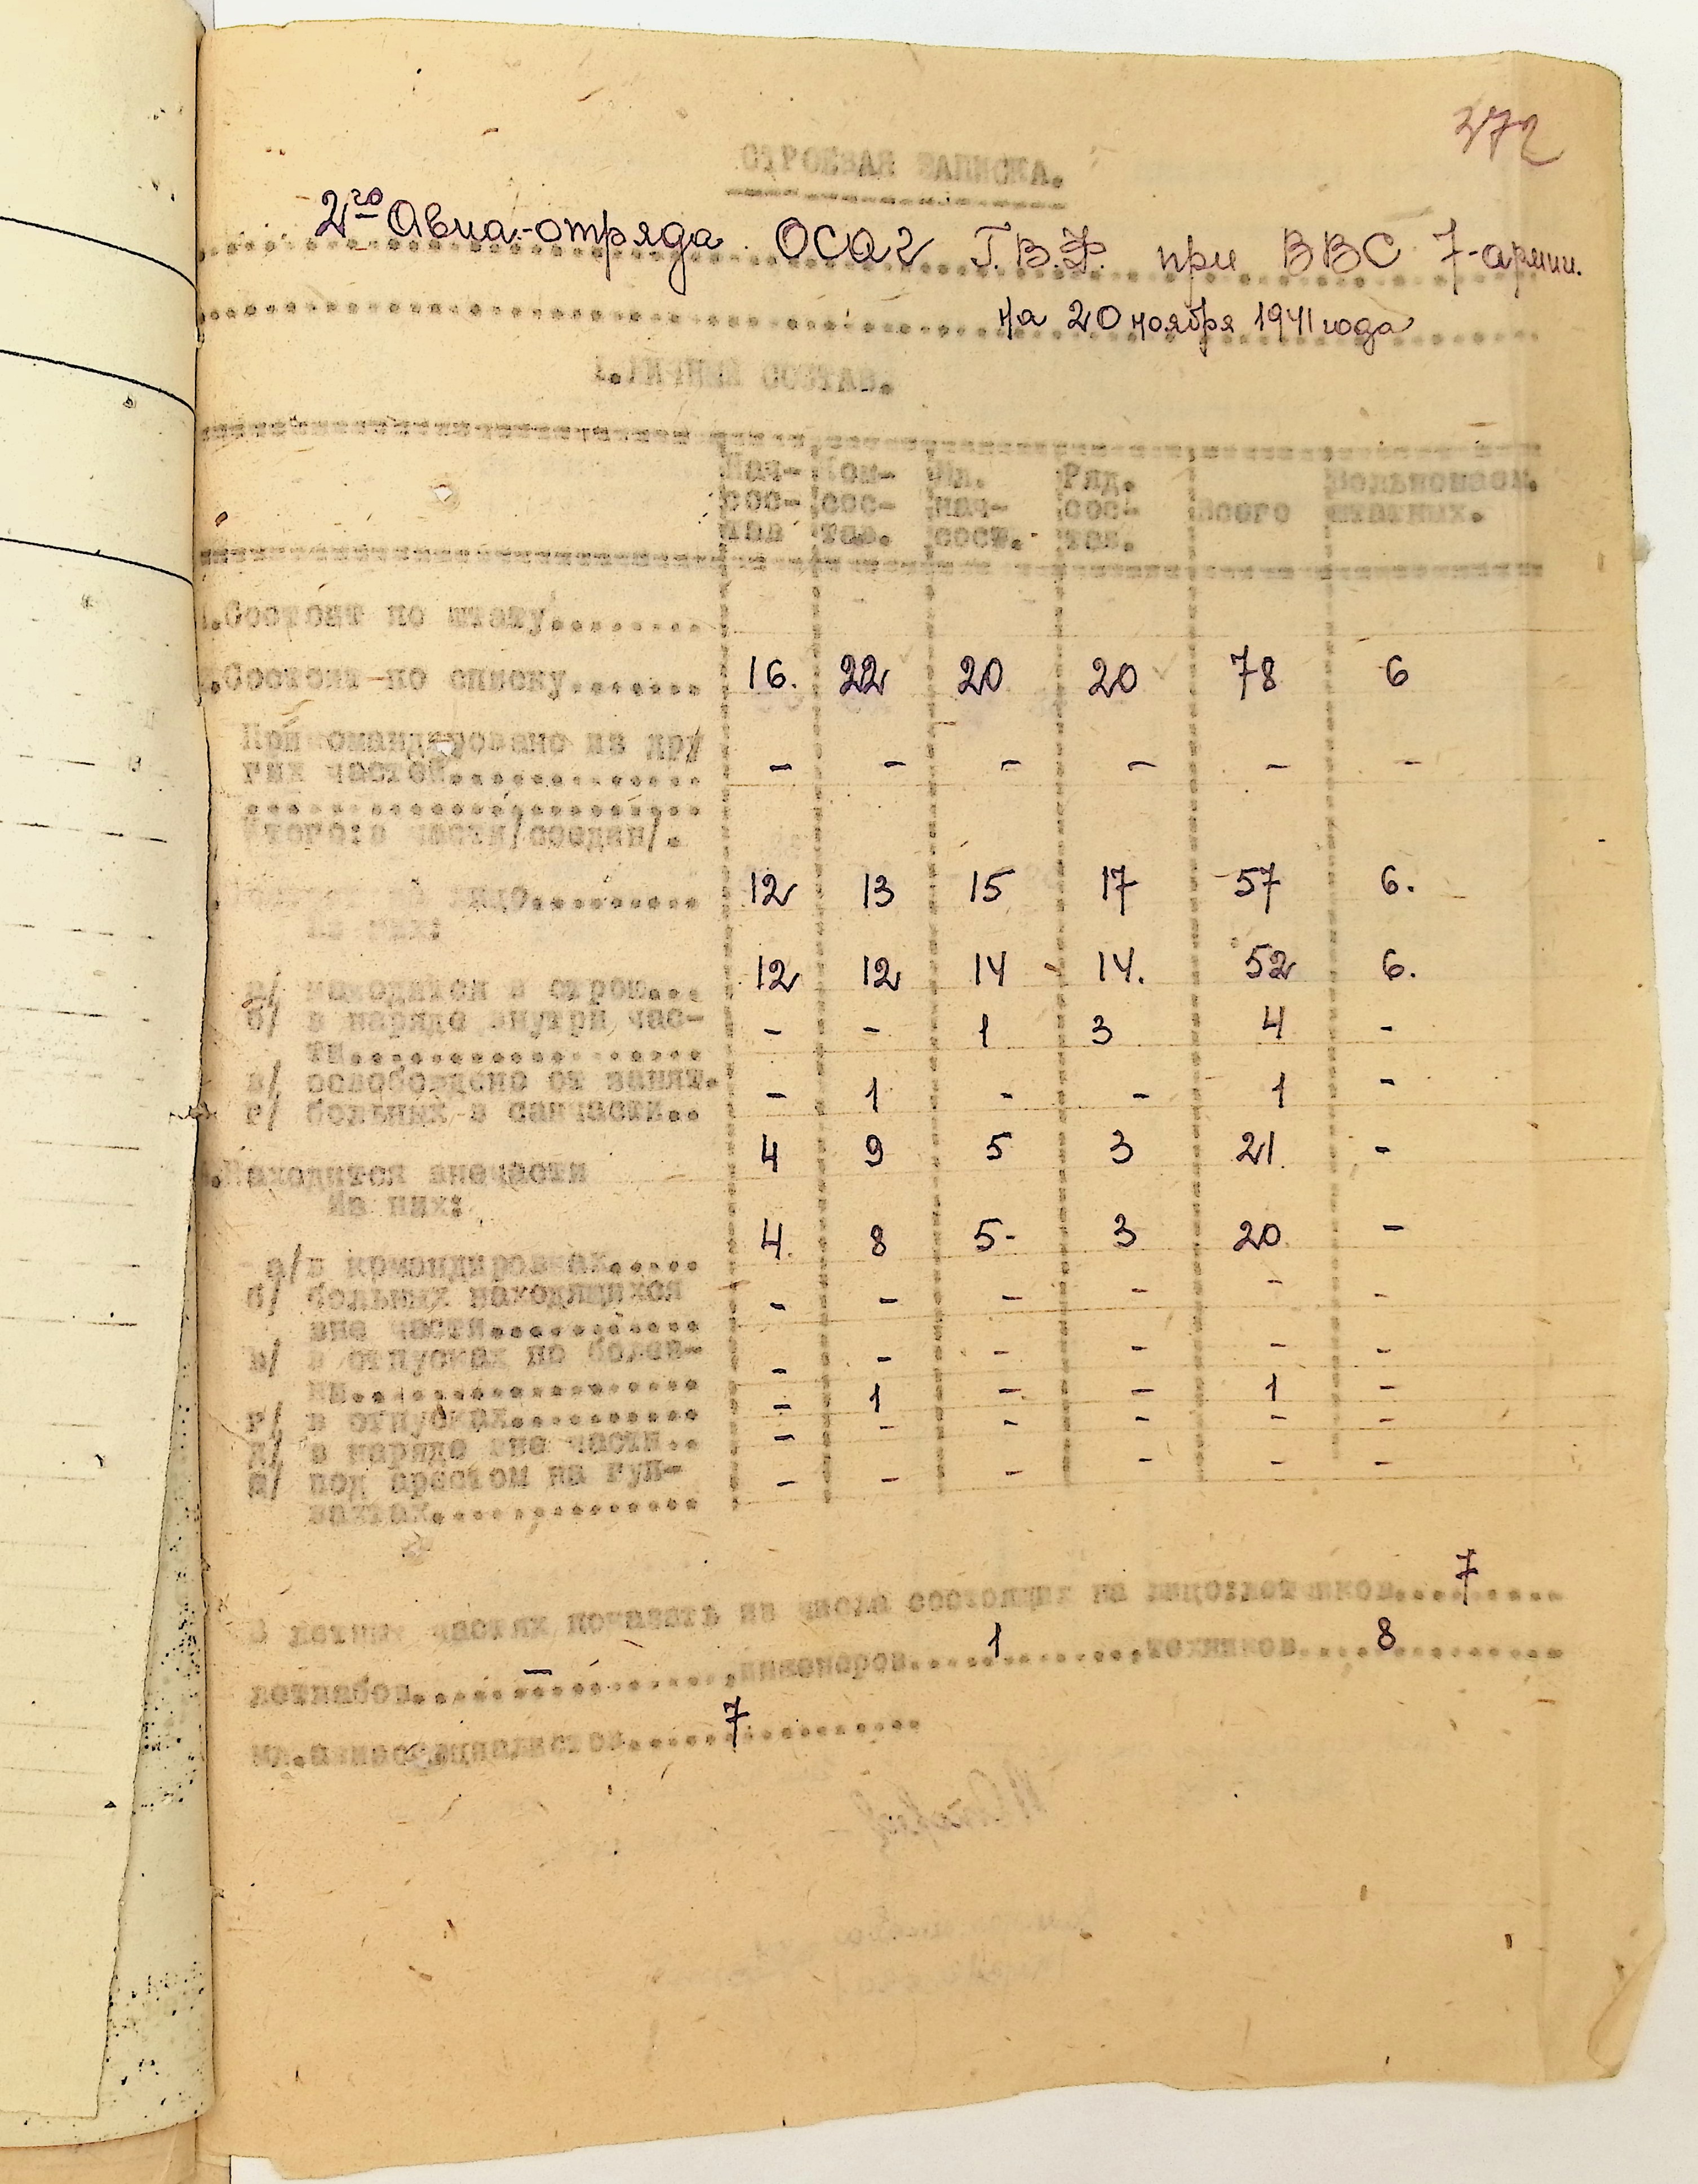 372
СТРОЕВАЯ ЗАПИСКА.
2го Авиа-отряда ОСАГ Г.В.Ф. при ВВС 7-армии.
на 20 ноября 1941 года
1.ЛИЧНЫЙ СОСТАВ.
Нач- Ком- Мл. Ряд. Вольнонаем.
сос- сос- нач- сос- Всего штатных.
тав тав. сост. тав.
1.Состоит по штату........
.Состоит по списку....... 16. 22 20 20 78 6
Прикомандировано из дру
гих частей............. - - - - - -
Итого:в части/соедин/.
Состоит на лицо......... 12 13 15 17 57 6.
Из них:
а/ находится в строю... 12 12 14 14. 52 6.
б/ в наряде внутри час- - - 1 3 4 -
ти...................
в/ освобождено от занят.
г/ больных в санчасти.. - 1 - - 1 -
.Находится вне части 4 9 5 3 21. -
Из них:
а/в командировках..... 4. 8 5- 3 20. -
б/ больных находящихся
вне части............ - - - - - -
в/ в отпусках по болез-
ни................... - - - - - -
г/ в отпусках.......... - 1 - - 1 -
д/ в наряде вне части.. - - - - - -
е/ под арестом на гуп-
вахтах............... - - - - - -
В летных частях показать из числа состоящих на лицо:летчиков....7.....
летнабов.......-.........,инженеров.....1......,техников....8.......
мл.авиоспециалистов......7..........